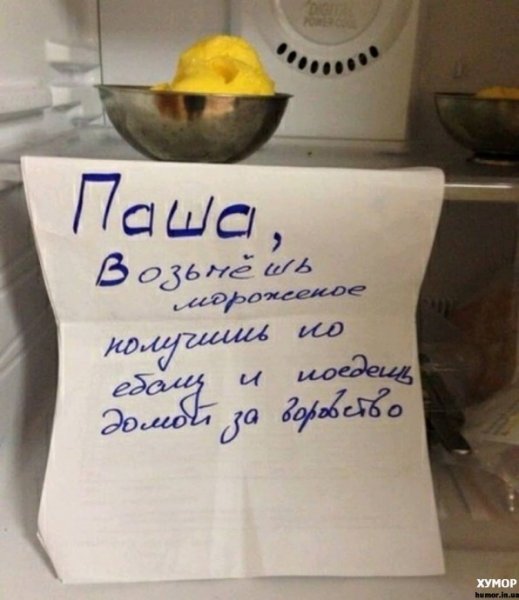 DIGITAL
POWER COOL
Паша,
Возьмёшь
мороженое
получишь по
ебалу и поедешь
домой за воровство
ХУМОР
humor.in.ua